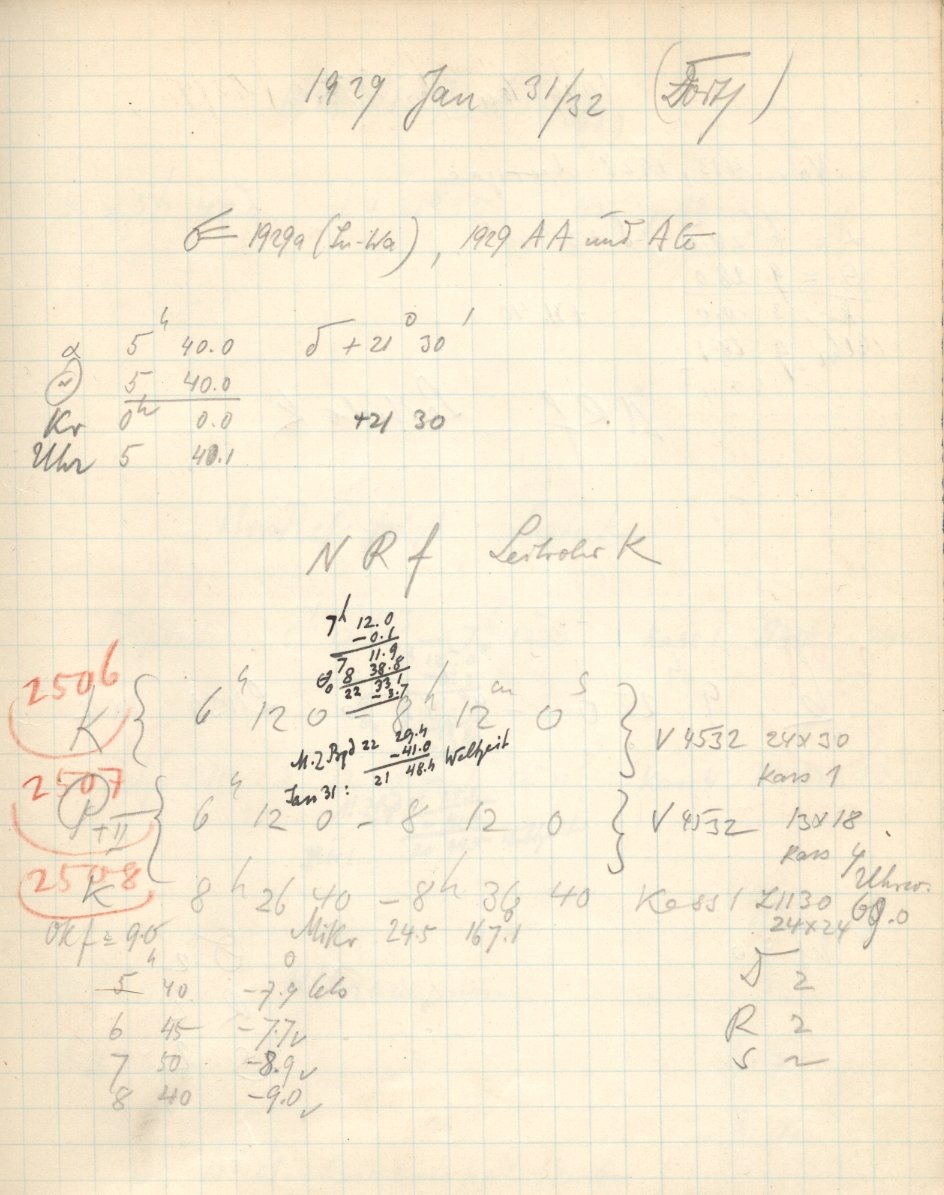 1929 Jan 31/32
1929a (Su-Wa), 1929 AA und AB
α 5ʰ 40.0 δ +21° 30'
5 40.0
Kr 0ʰ 0.0 +21 30
Uhr 5 40.1
N R f Leitrohr K
7ʰ 12.0
-0.1
7 11.9
8 38.8
22 33.1
-3.7
M.Z. Bgd 22 29.4
-41.0
Jan 31: 21 48.4 Weltzeit
2506
K { 6ʰ 12 0 - 8ʰ 12ᵐ 0ˢ } V 4532 24x30
Kass 1
2507
P+II { 6ʰ 12 0 - 8 12 0 } V 4532 13x18
Kass 4
2508
K 8ʰ 26 40 - 8ʰ 36 40 Kass 1 Z1130
24x24
Okf = 9.0 Mikr 24.5 167.1
5ʰ 40 -7.9°
6 45 -7.7
7 50 -8.9
8 40 -9.0
D 2
R 2
S 2